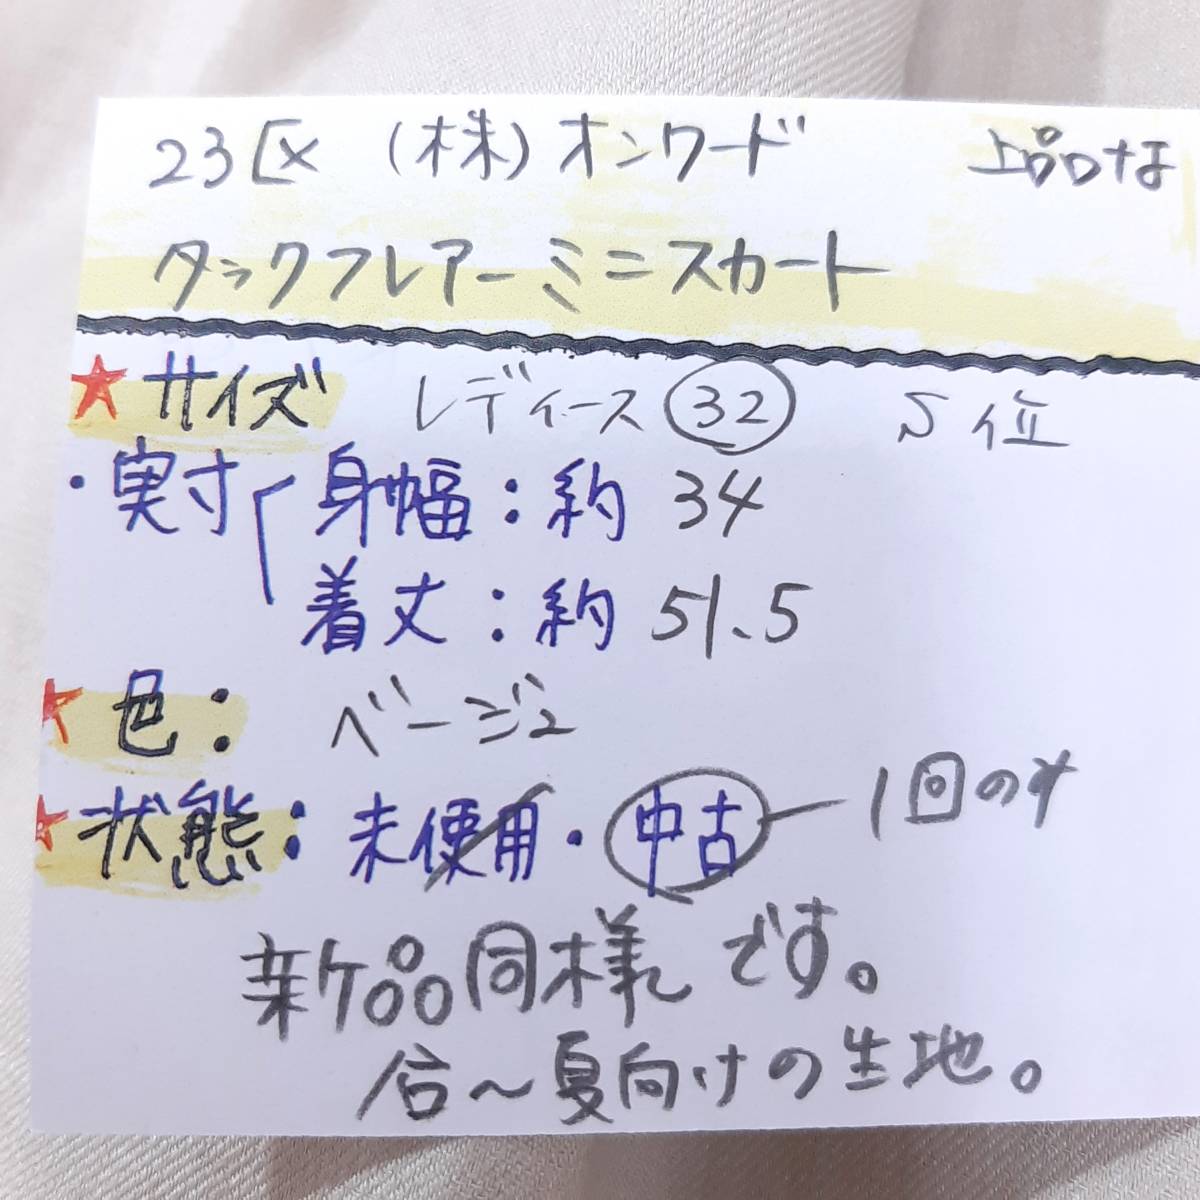 23区 (株)オンワード 上品な
タックフレアーミニスカート
★サイズ レディース 32 S位
・実寸 身幅：約 34
着丈：約 51.5
★色： ベージュ
★状態：未使用・中古 ー 1回のみ
新品同様です。
春〜夏向けの生地。